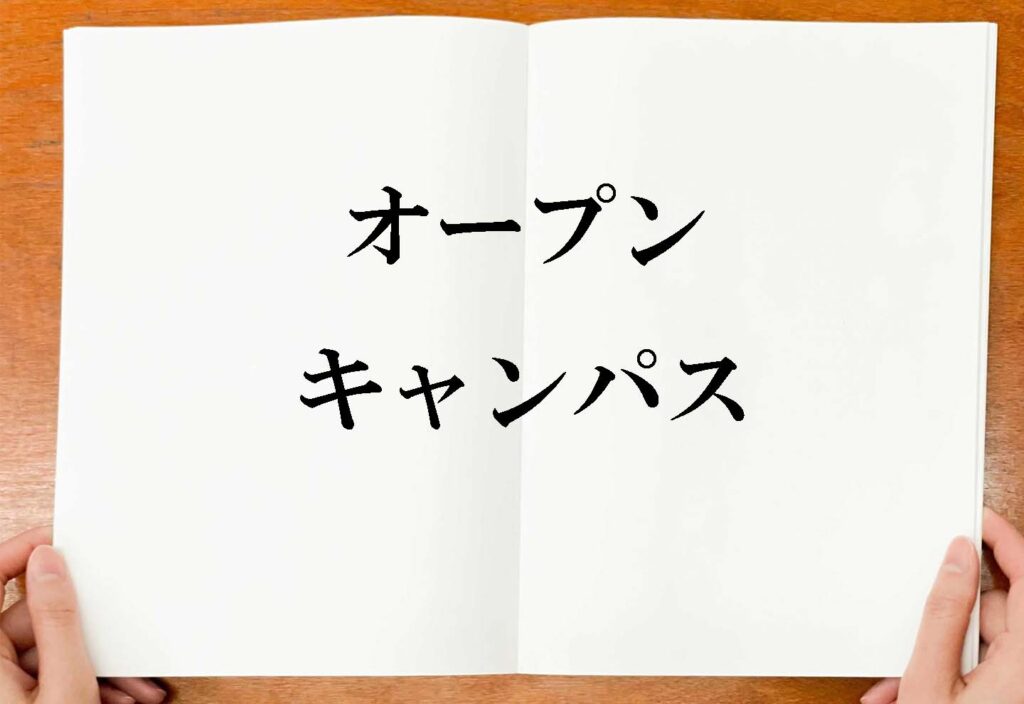 オープン
キャンパス